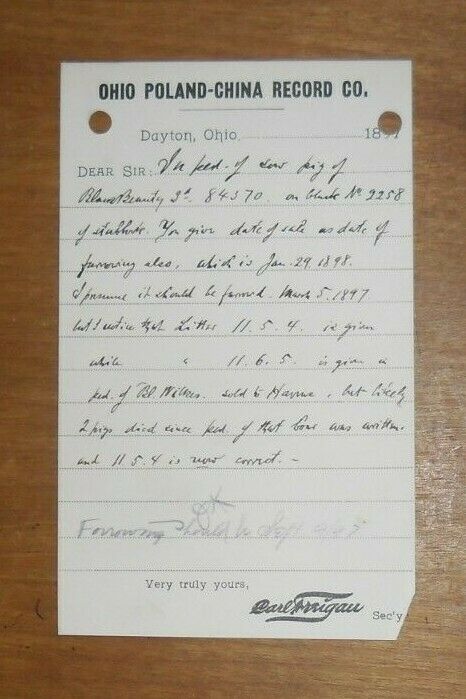 OHIO POLAND-CHINA RECORD CO.
Dayton, Ohio 189
DEAR SIR: In ped. of sow pig of
Black Beauty 3d. 84370 on blank No 2258
of stubbook. You give date of sale as date of
farrowing also, which is Jan. 29, 1898.
I presume it should be farrowed March 5. 1897
but I notice that Litter 11. 5. 4. is given
while " 11. 6. 5. is given in
ped. of Bl. Wilkes sold to Hanna, but likely
2 pigs died since ped. of that one was written
and 11 5. 4 is now correct. -
OK
Farrowing should be Sept
Very truly yours,
Carl Freigau
Sec'y